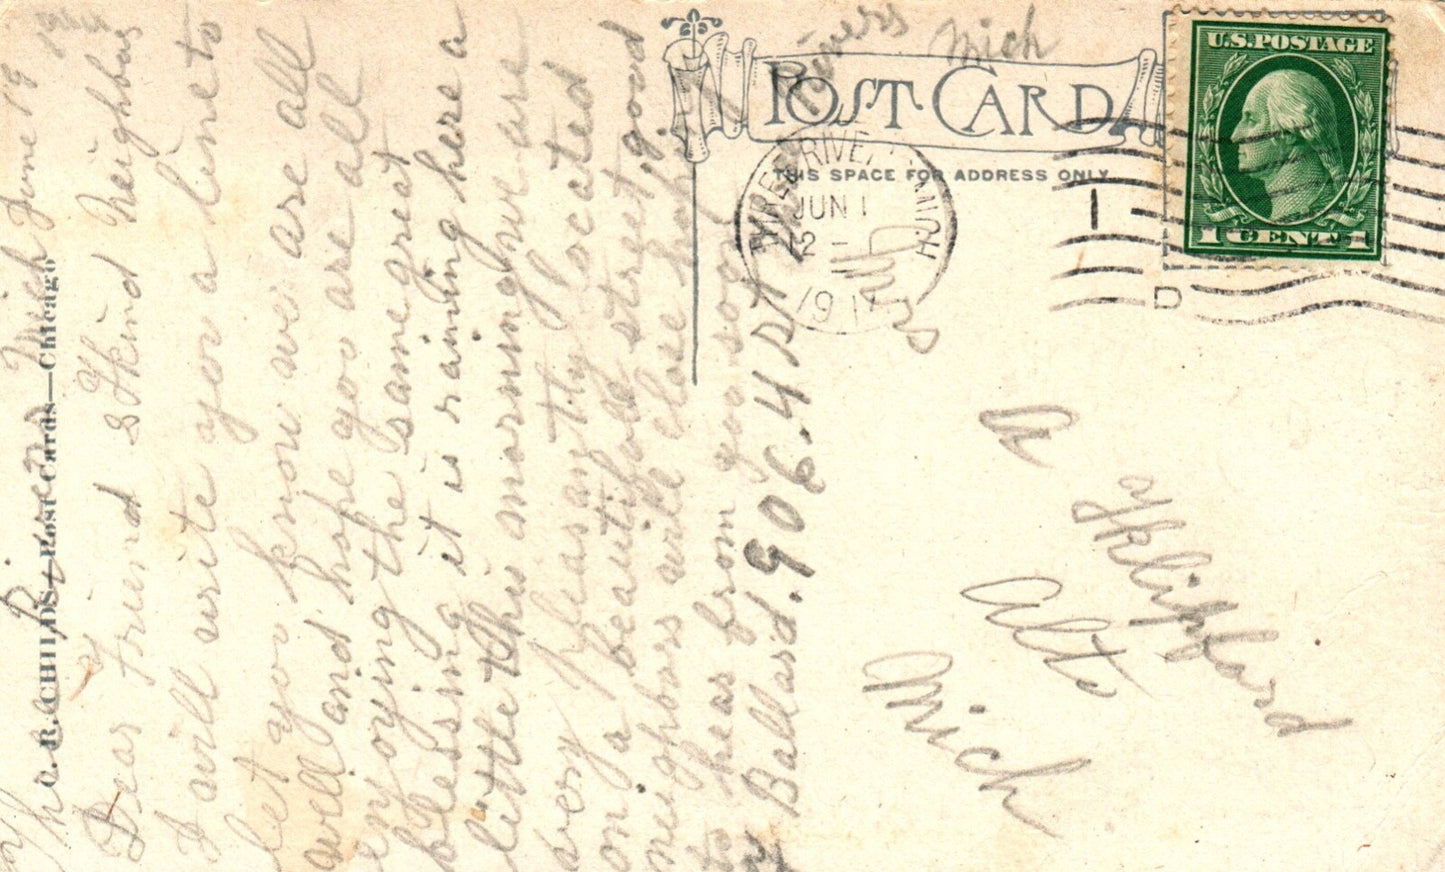 Three Rivers Mich June 19 1917
Dear Friend & Kind Neighbors
I will write you a line to
let you know we are all
well and hope you are all
enjoying the same great
blessing it is raining here a
little this morning we are
very pleasantly located
on a beautiful street good
neighbors and close hoping
to hear from you soon
Ballard. 906. 4 St
Rivers Mich
C. R. CHILDS—Post Cards—Chicago
POST CARD
THIS SPACE FOR ADDRESS ONLY.
THREE RIVERS MICH
JUN 1
12 -
1917
1
D
U.S. POSTAGE
1 CENT 1
A
Alto
Mich